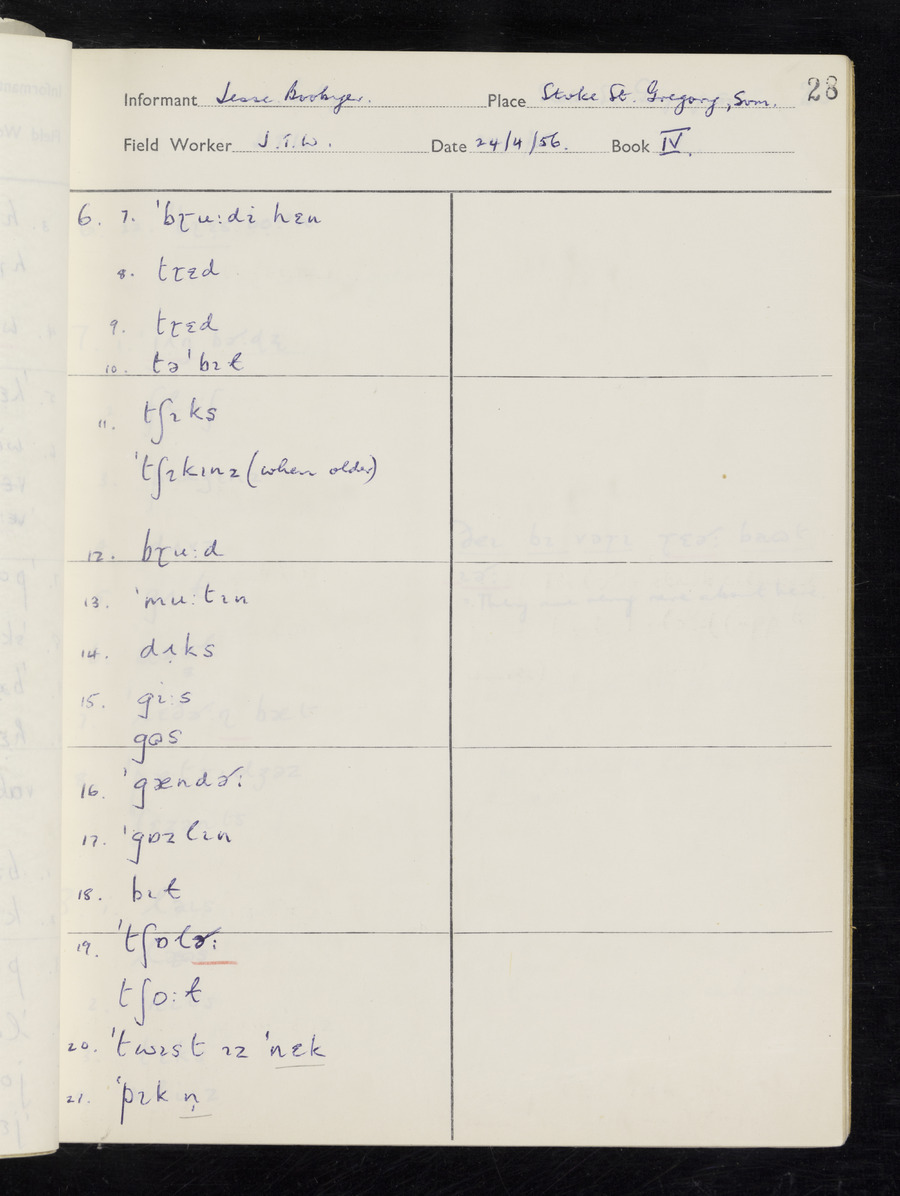 28
Informant Jesse Place Stoke St. Gregory, Som.
Field Worker J.T.W. Date 24/4/56. Book IV.
6. 7. ˈbɽu:di hɛn
8. tɽɛd
9. tɽɛd
10. təˈbɪɫ
11. tʃɪks
ˈtʃɪkɪnz (when older)
12. bɽu:d
13. ˈmu:tɪn
14. dɪ̣ks
15. gɪ:s
gɷs
16. ˈgændɚ:
17. ˈgɒzlɪn
18. bɪɫ
19. ˈtʃɒlɚ:
tʃɒ:ɫ
20. ˈtwɪst ɪz ˈnɛk
21. ˈpɪk n̩